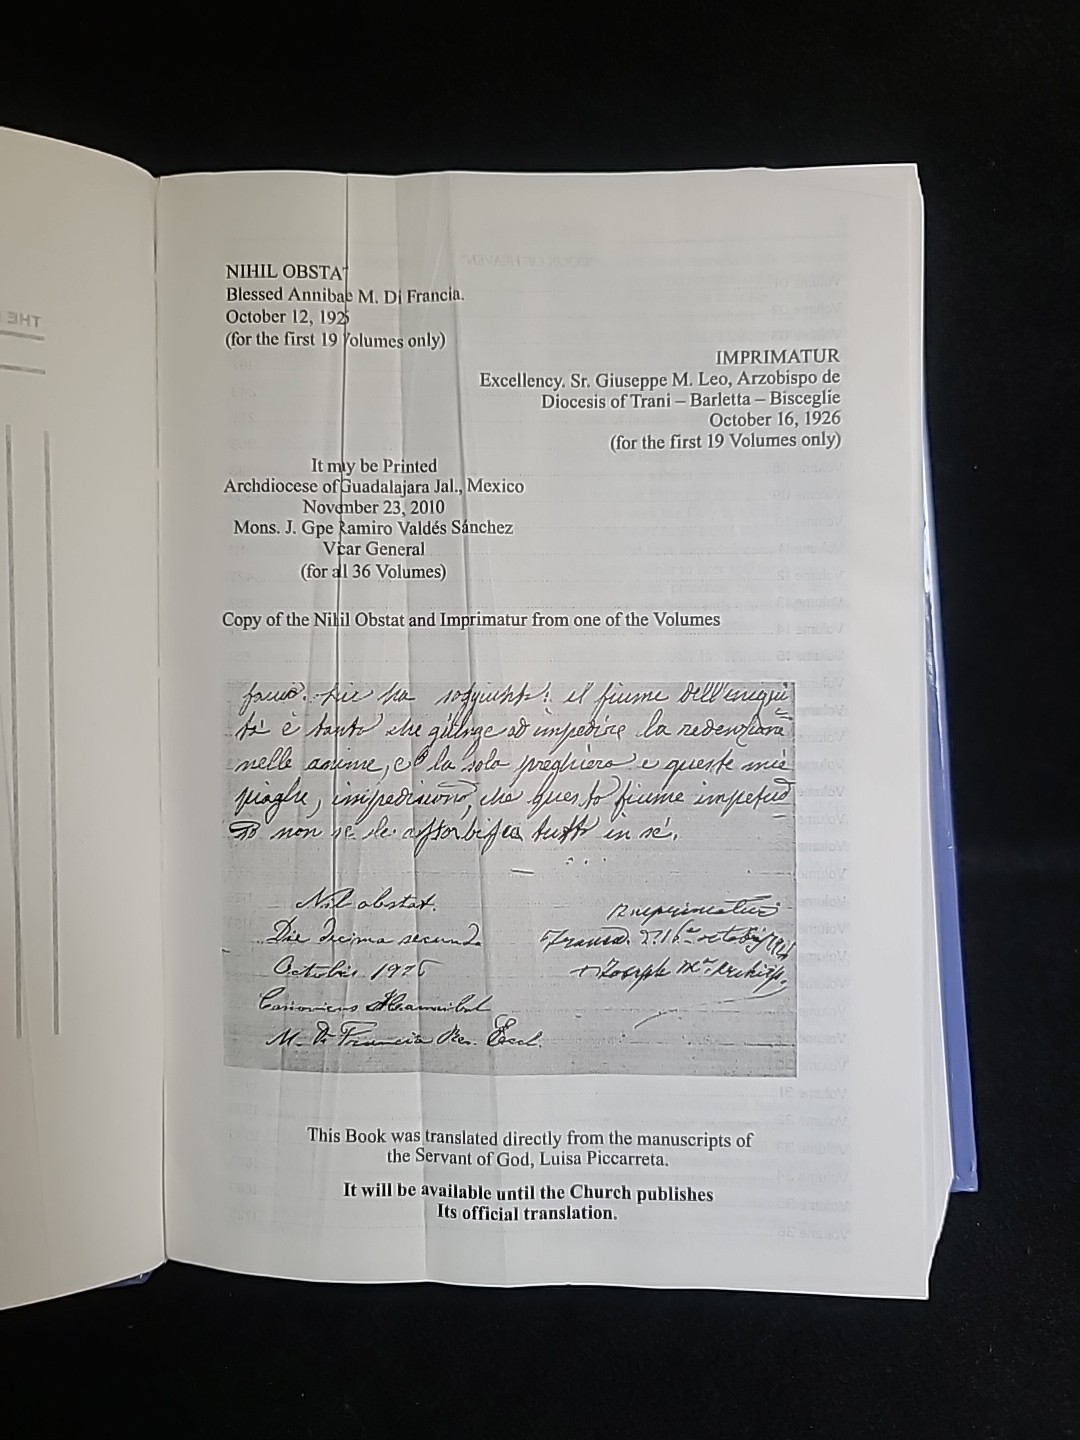 NIHIL OBSTAT
Blessed Annibae M. Di Francia.
October 12, 1925
(for the first 19 Volumes only)
IMPRIMATUR
Excellency. Sr. Giuseppe M. Leo, Arzobispo de
Diocesis of Trani – Barletta – Bisceglie
October 16, 1926
(for the first 19 Volumes only)
It may be Printed
Archdiocese of Guadalajara Jal., Mexico
November 23, 2010
Mons. J. Gpe Ramiro Valdés Sánchez
Vicar General
(for all 36 Volumes)
Copy of the Nihil Obstat and Imprimatur from one of the Volumes
ha il fiume dell'iniqui
tà è tanto che giunge ad impedire la redenzione
nelle anime, e la sola preghiera e queste mie
piaghe, impediscono, che questo fiume impetuo
so non se le assorbisca tutto in sé.
Nil obstat.
Die decima secunda
Octobris 1925
Canonicus Hannibal
M. Di Francia Rev. Eccl.
Imprimatur
octobris
+ Joseph M. Archiep.
This Book was translated directly from the manuscripts of
the Servant of God, Luisa Piccarreta.
It will be available until the Church publishes
Its official translation.